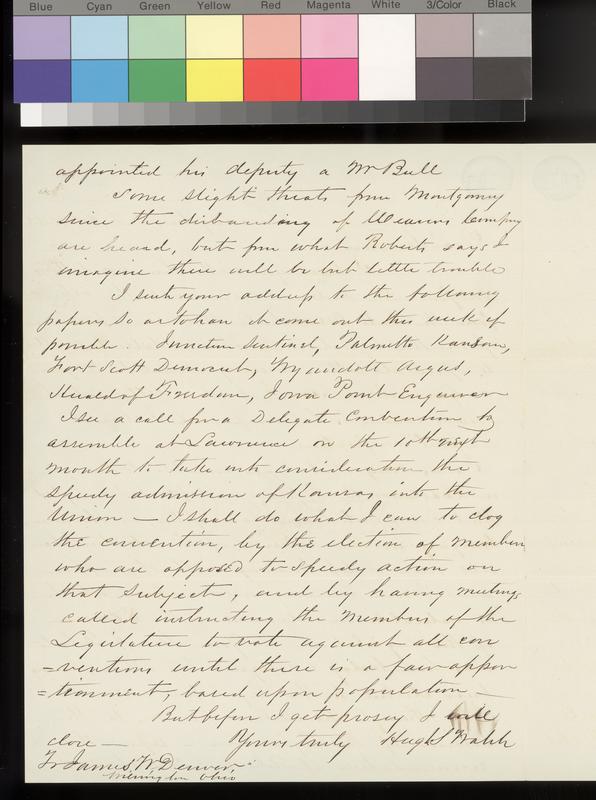 Blue Cyan Green Yellow Red Magenta White 3/Color Black
appointed his deputy a Mr Bull
Some slight threats from Montgomery
since the disbanding of Weavers Company
are heard, but from what Roberts says I
imagine there will be but little trouble
I sent your address to the following
papers so as to have it come out this week if
possible. Junction Sentinel, Palmetto Kansan,
Fort Scott Democrat, Wyandott Argus,
Herald of Freedom, Iowa Point Enquirer
I see a call for a Delegate Convention to
assemble at Lawrence on the 10th next
month to take into consideration the
speedy admission of Kansas into the
Union — I shall do what I can to clog
the convention, by the election of members
who are opposed to speedy action on
that subject, and by having meetings
called instructing the Members of the
Legislature to vote against all con
=ventions until there is a fair appor
=tionment, based upon population —
But before I get prosy I will
close — Yours truly Hugh S Walsh
To James W. Denver
Wilmington Ohio